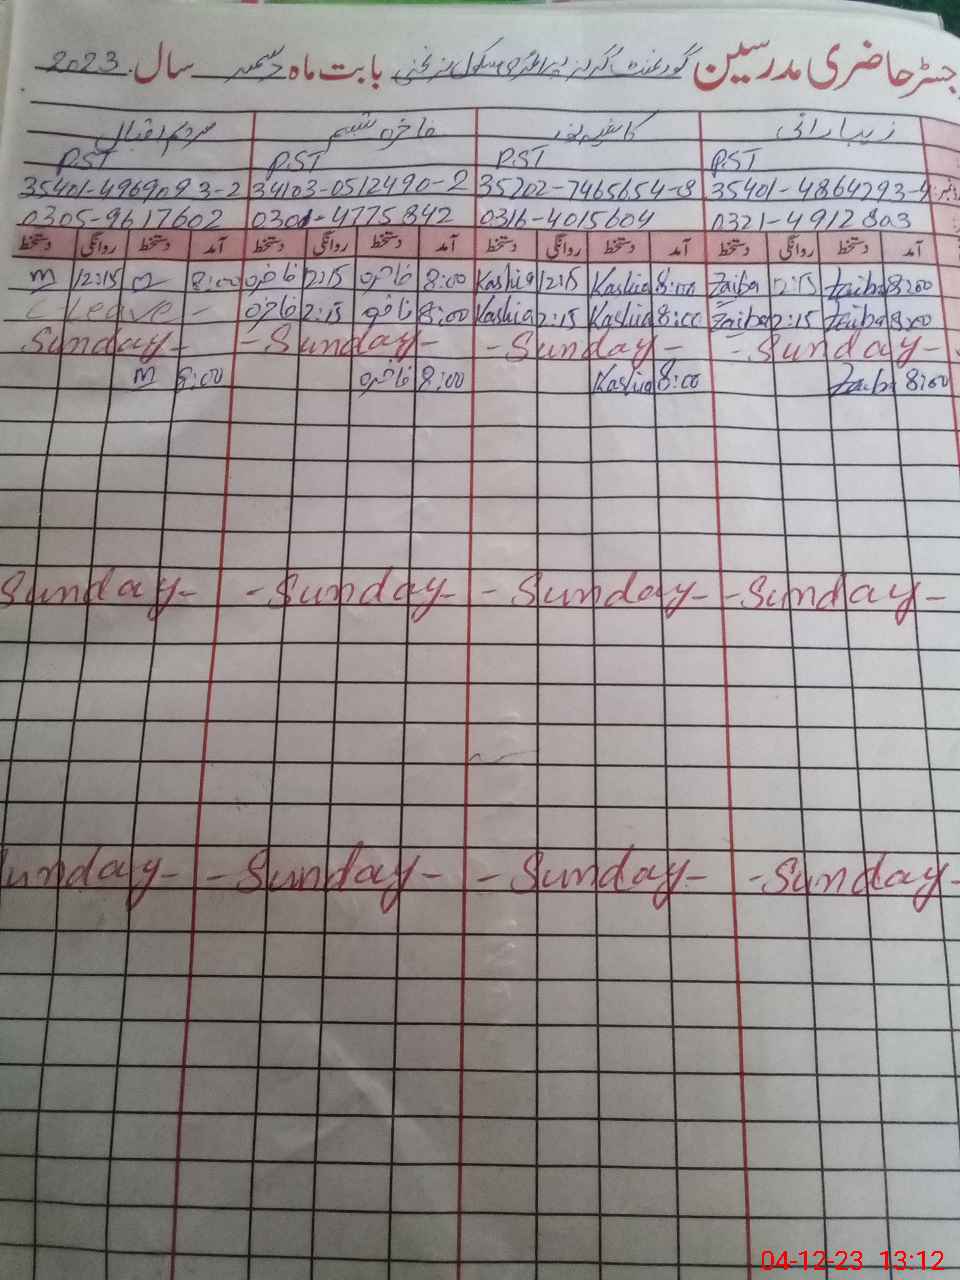 رجسٹر حاضری مدرسین گورنمنٹ گرلز پرائمری سکول بابت ماہ دسمبر سال 2023
زیبا رانی فاخرہ شبیر مریم اقبال
PST PST PST PST
35401-4969093-2 34103-0512490-2 35202-7465654-8 35401-4864293-4
0305-9617602 0301-4775842 0316-4015604 0321-4912803
آمد دستخط روانگی دستخط آمد دستخط روانگی دستخط آمد دستخط روانگی دستخط آمد دستخط روانگی دستخط
m 12:15 m 8:00 فاخرہ 2:15 فاخرہ 8:00 Kashia 12:15 Kashia 8:00 Zaiba 2:15 Zaiba 8:00
C Leave - فاخرہ 2:15 فاخرہ 8:00 Kashia 2:15 Kashia 8:00 Zaiba 2:15 Zaiba 8:00
Sunday- -Sunday- -Sunday- -Sunday-
m 8:00 فاخرہ 8:00 Kashia 8:00 Zaiba 8:00
Sunday- -Sunday- -Sunday- -Sunday-
unday- -Sunday- -Sunday- -Sunday-
04-12-23 13:12